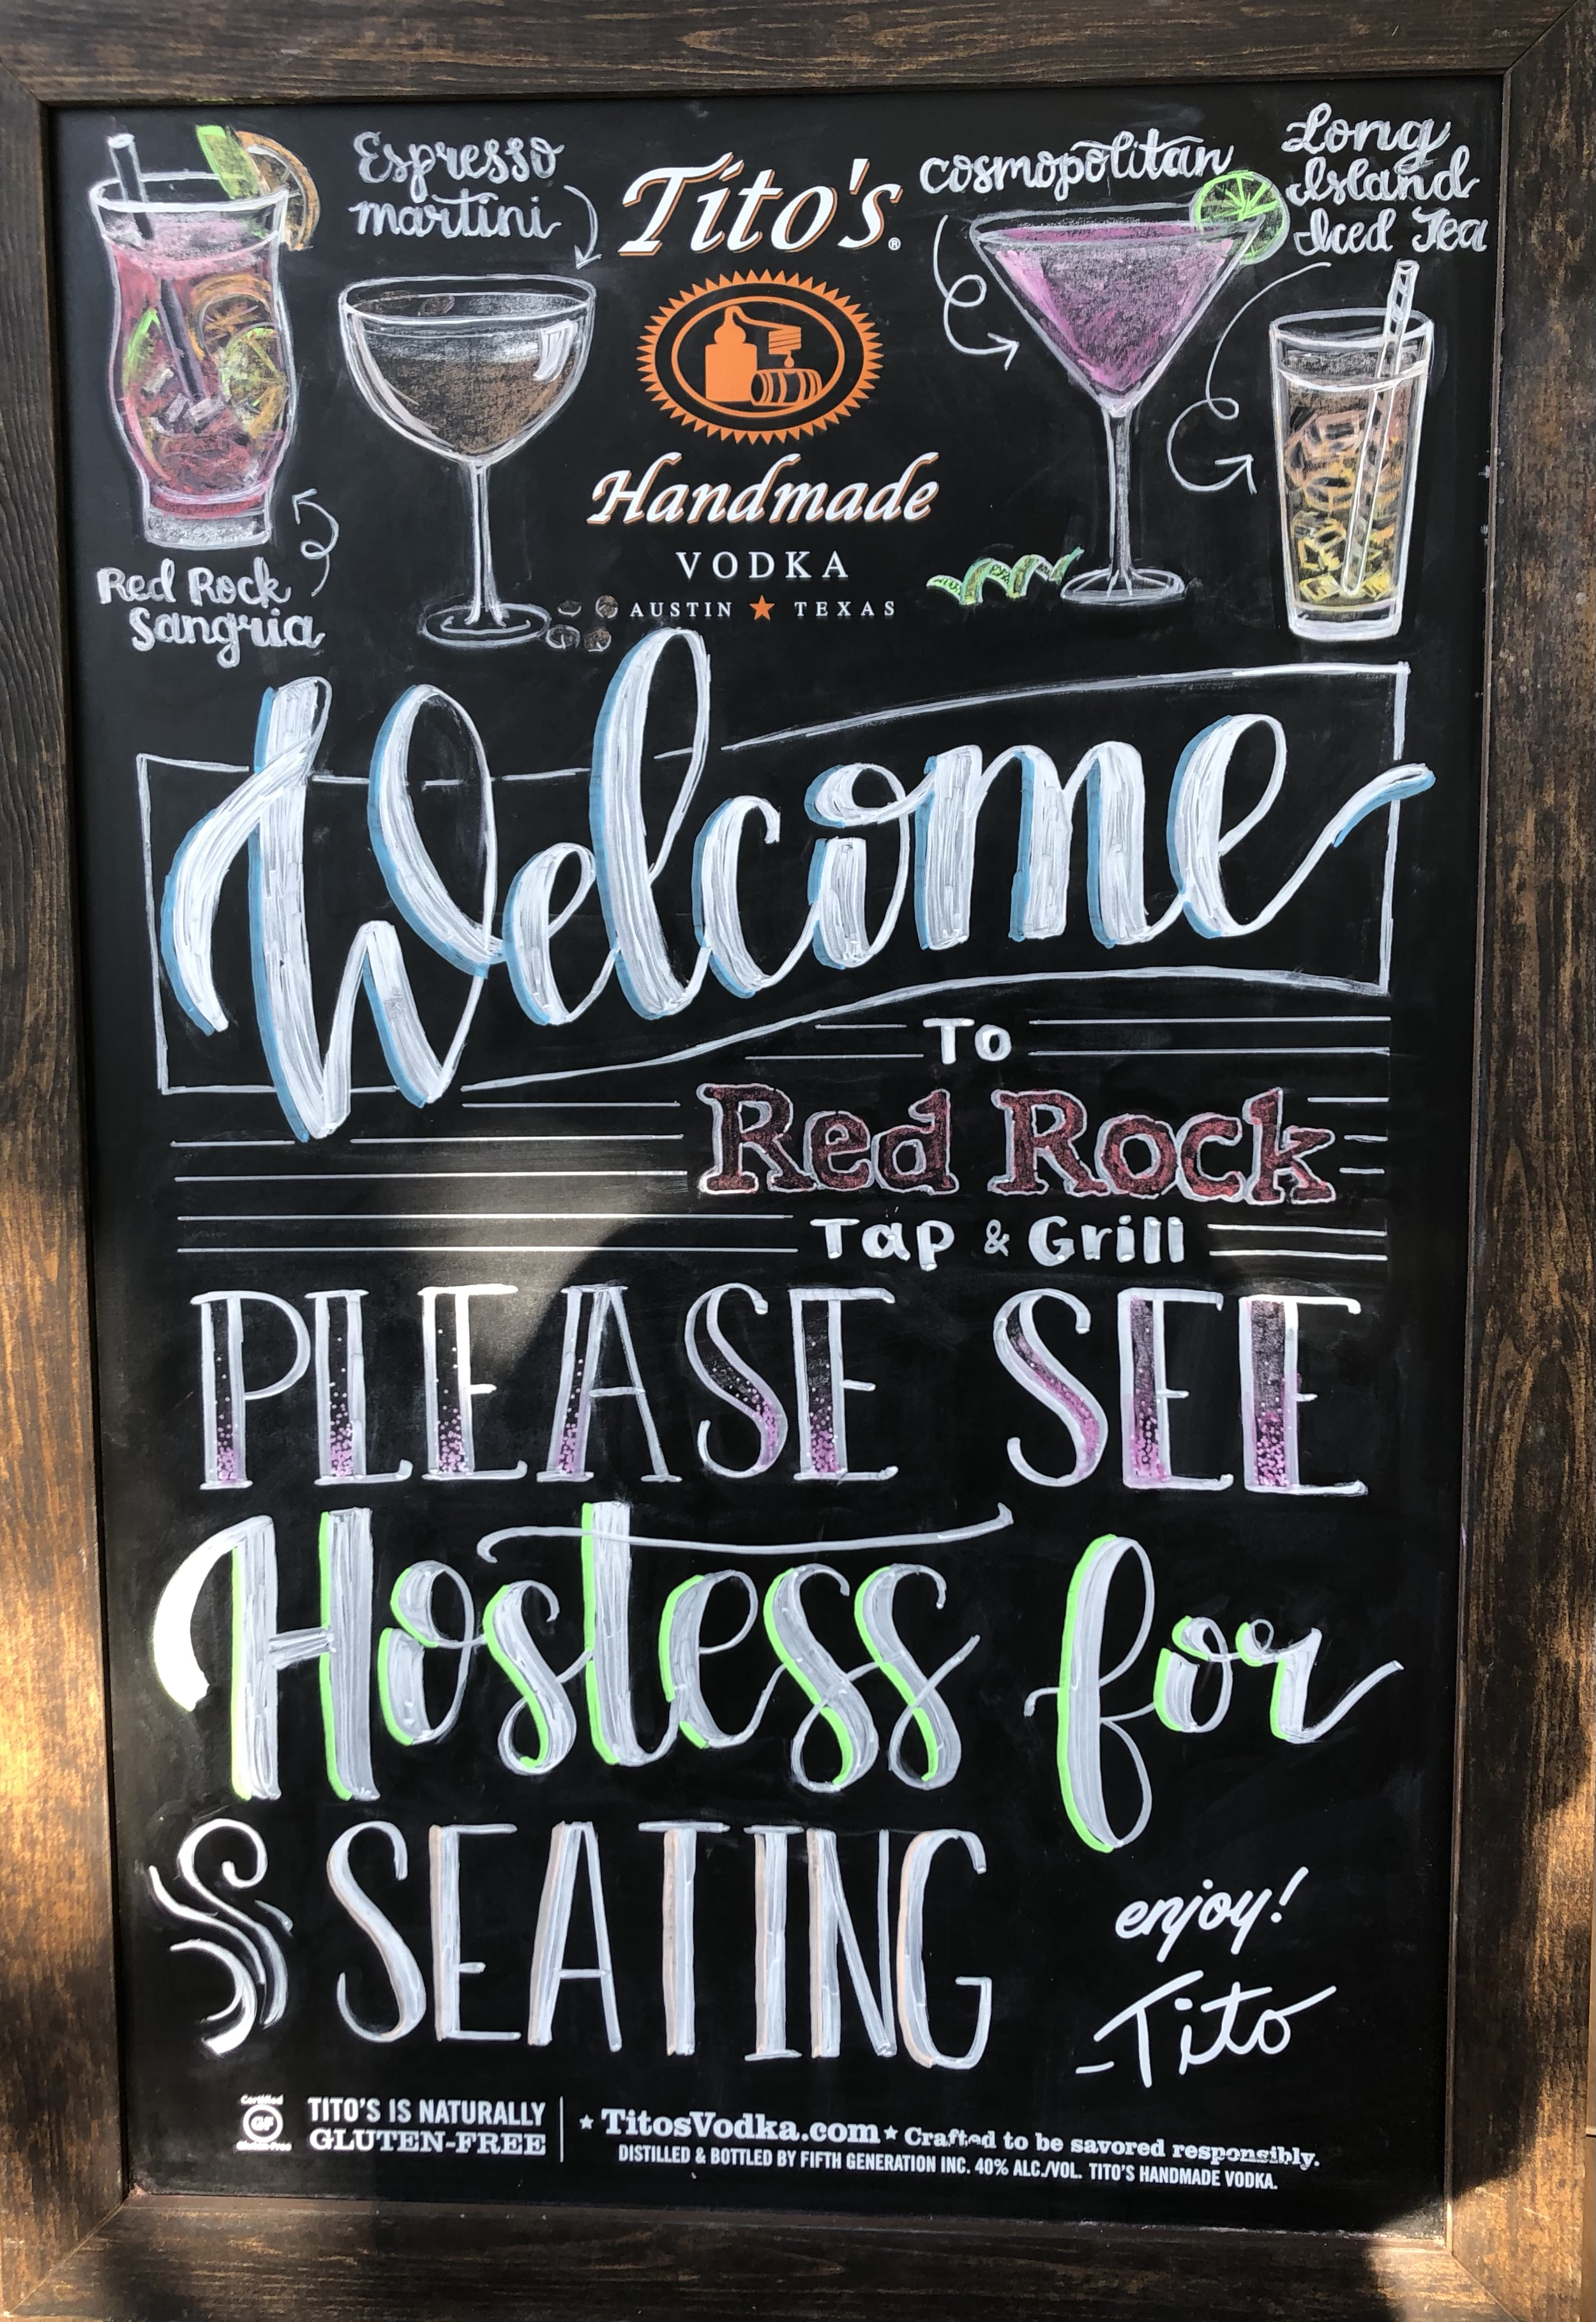 Espresso
martini
Tito's®
Handmade
VODKA
AUSTIN ★ TEXAS
cosmopolitan
Long
Island
Iced Tea
Red Rock
Sangria
Welcome
To
Red Rock
Tap & Grill
PLEASE SEE
Hostess for
SEATING
enjoy!
-Tito
Certified
GF
Gluten-Free
TITO'S IS NATURALLY
GLUTEN-FREE
★ TitosVodka.com ★ Crafted to be savored responsibly.
DISTILLED & BOTTLED BY FIFTH GENERATION INC. 40% ALC./VOL. TITO'S HANDMADE VODKA.